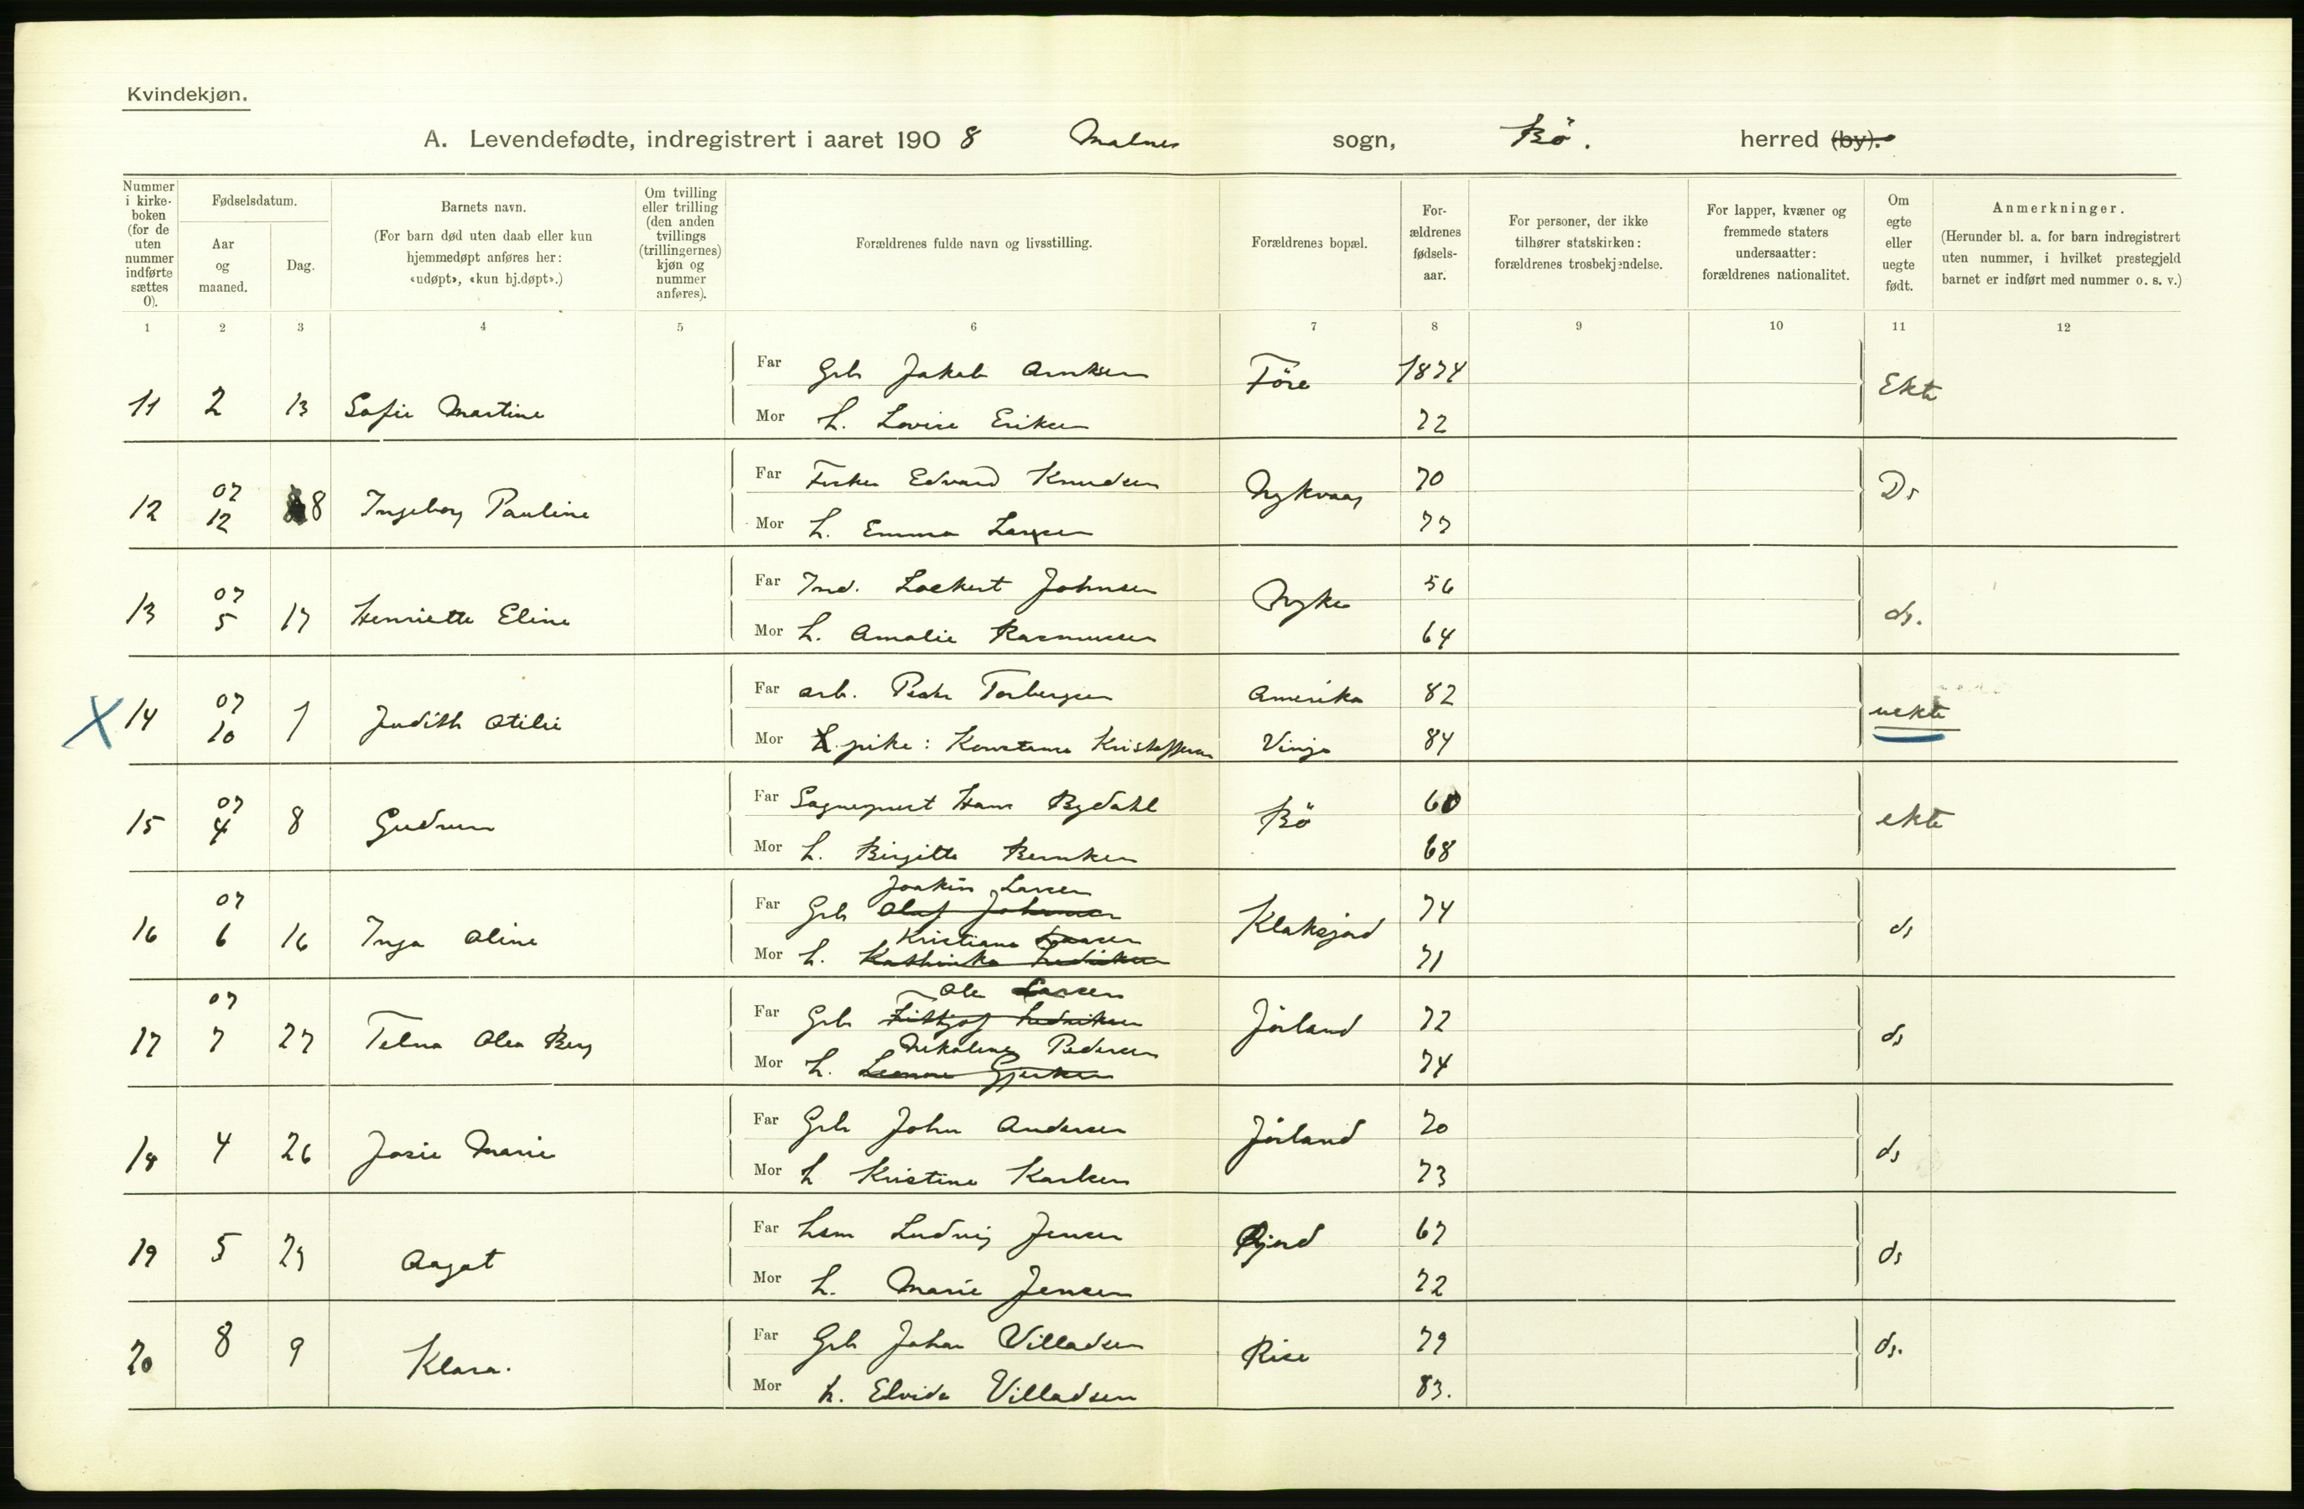 Kvindekjøn.
A. Levendefødte, indregistrert i aaret 1908 Malnes sogn, Bö. herred (by).
Nummer i kirke-boken (for de uten nummer indførte sættes 0).
Fødselsdatum.
Aar og maaned.
Dag.
Barnets navn.
(For barn død uten daab eller kun hjemmedøpt anføres her: «udøpt», «kun hj.døpt».)
Om tvilling eller trilling (den anden tvillings (trillingernes) kjøn og nummer anføres).
Forældrenes fulde navn og livsstilling.
Forældrenes bopæl.
For-ældrenes fødsels-aar.
For personer, der ikke tilhører statskirken: forældrenes trosbekjendelse.
For lapper, kvæner og fremmede staters undersaatter: forældrenes nationalitet.
Om egte eller uegte født.
Anmerkninger.
(Herunder bl. a. for barn indregistrert uten nummer, i hvilket prestegjeld barnet er indført med nummer o. s. v.)
1 2 3 4 5 6 7 8 9 10 11 12
Far Grb Jakob Arntsen Före 1874
11 2 13 Sofie Martine Ekte
Mor h. Lovise Eriksen 72
Far Fisker Edvard Knudsen Nykvaag 70
12 07 12 8 Ingeborg Pauline Ds
Mor h. Emma Larsen 77
Far Ind. Lockert Johnsen Nyke 56
13 07 5 17 Henriette Eline ds.
Mor h. Amalie Rasmussen 64
Far arb. Peder Torbergsen Amerika 82
X 14 07 10 1 Judith Otilie uekte
Mor pike: Konstanse Kristoffersen Vinje 84
Far Sogneprest Hans Bydahl Bö 60
15 07 4 8 Gudrun ekte
Mor h. Birgitte Berntsen 68
Joakim Larsen
Far Grb Olaf Johansen Klaksjord 74
16 07 6 16 Inga Oline ds
Kristiane Larsen
Mor h. Kathinka Fredriksen 71
Ole Larsen
Far Grb Fritjof Fredriksen Jörland 72
17 07 7 27 Telna Olea Berg ds
Nikoline Pedersen
Mor h. 74
Far Grb John Andersen Jörland 70
18 4 26 Josie Marie ds
Mor h Kristine Karlsen 73
Far hsm Ludvig Jensen 67
19 5 29 Aagot ds
Mor h. Marie Jensen 72
Far Grb Johan Villadsen Rise 79
20 8 9 Klara. ds.
Mor h. Elvida Villadsen 83.